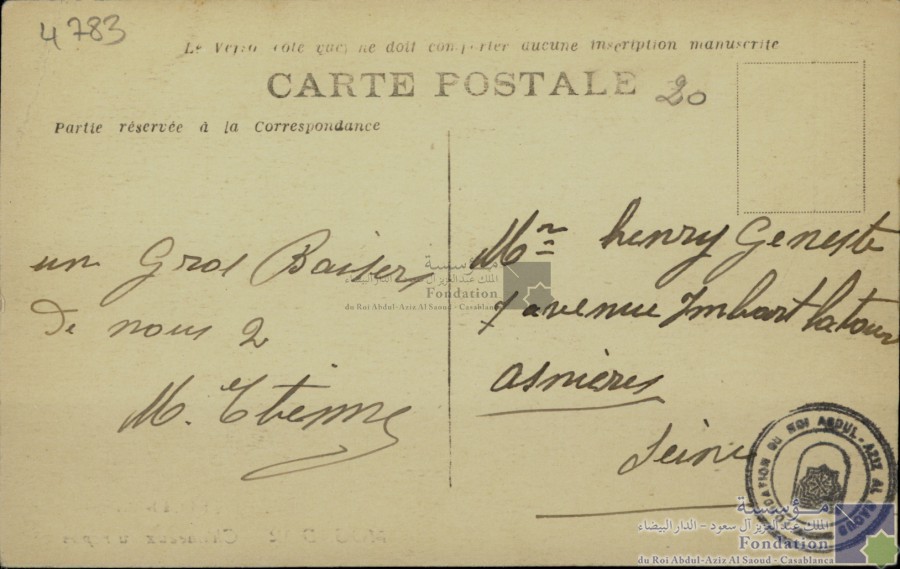 4783
Le Verso côté que, ne doit comporter aucune inscription manuscrite
CARTE POSTALE
20
Partie réservée à la Correspondance
un Gros Baisers
de nous 2
M. Etienne
Mr henry Geneste
7 avenue Imbart latour
asnières
Seine
مؤسسة
الملك عبد العزيز آل سعود - الدار البيضاء
Fondation
du Roi Abdul-Aziz Al Saoud - Casablanca
FONDATION DU ROI ABDUL-AZIZ AL SAOUD
مؤسسة
الملك عبد العزيز آل سعود - الدار البيضاء
Fondation
du Roi Abdul-Aziz Al Saoud - Casablanca